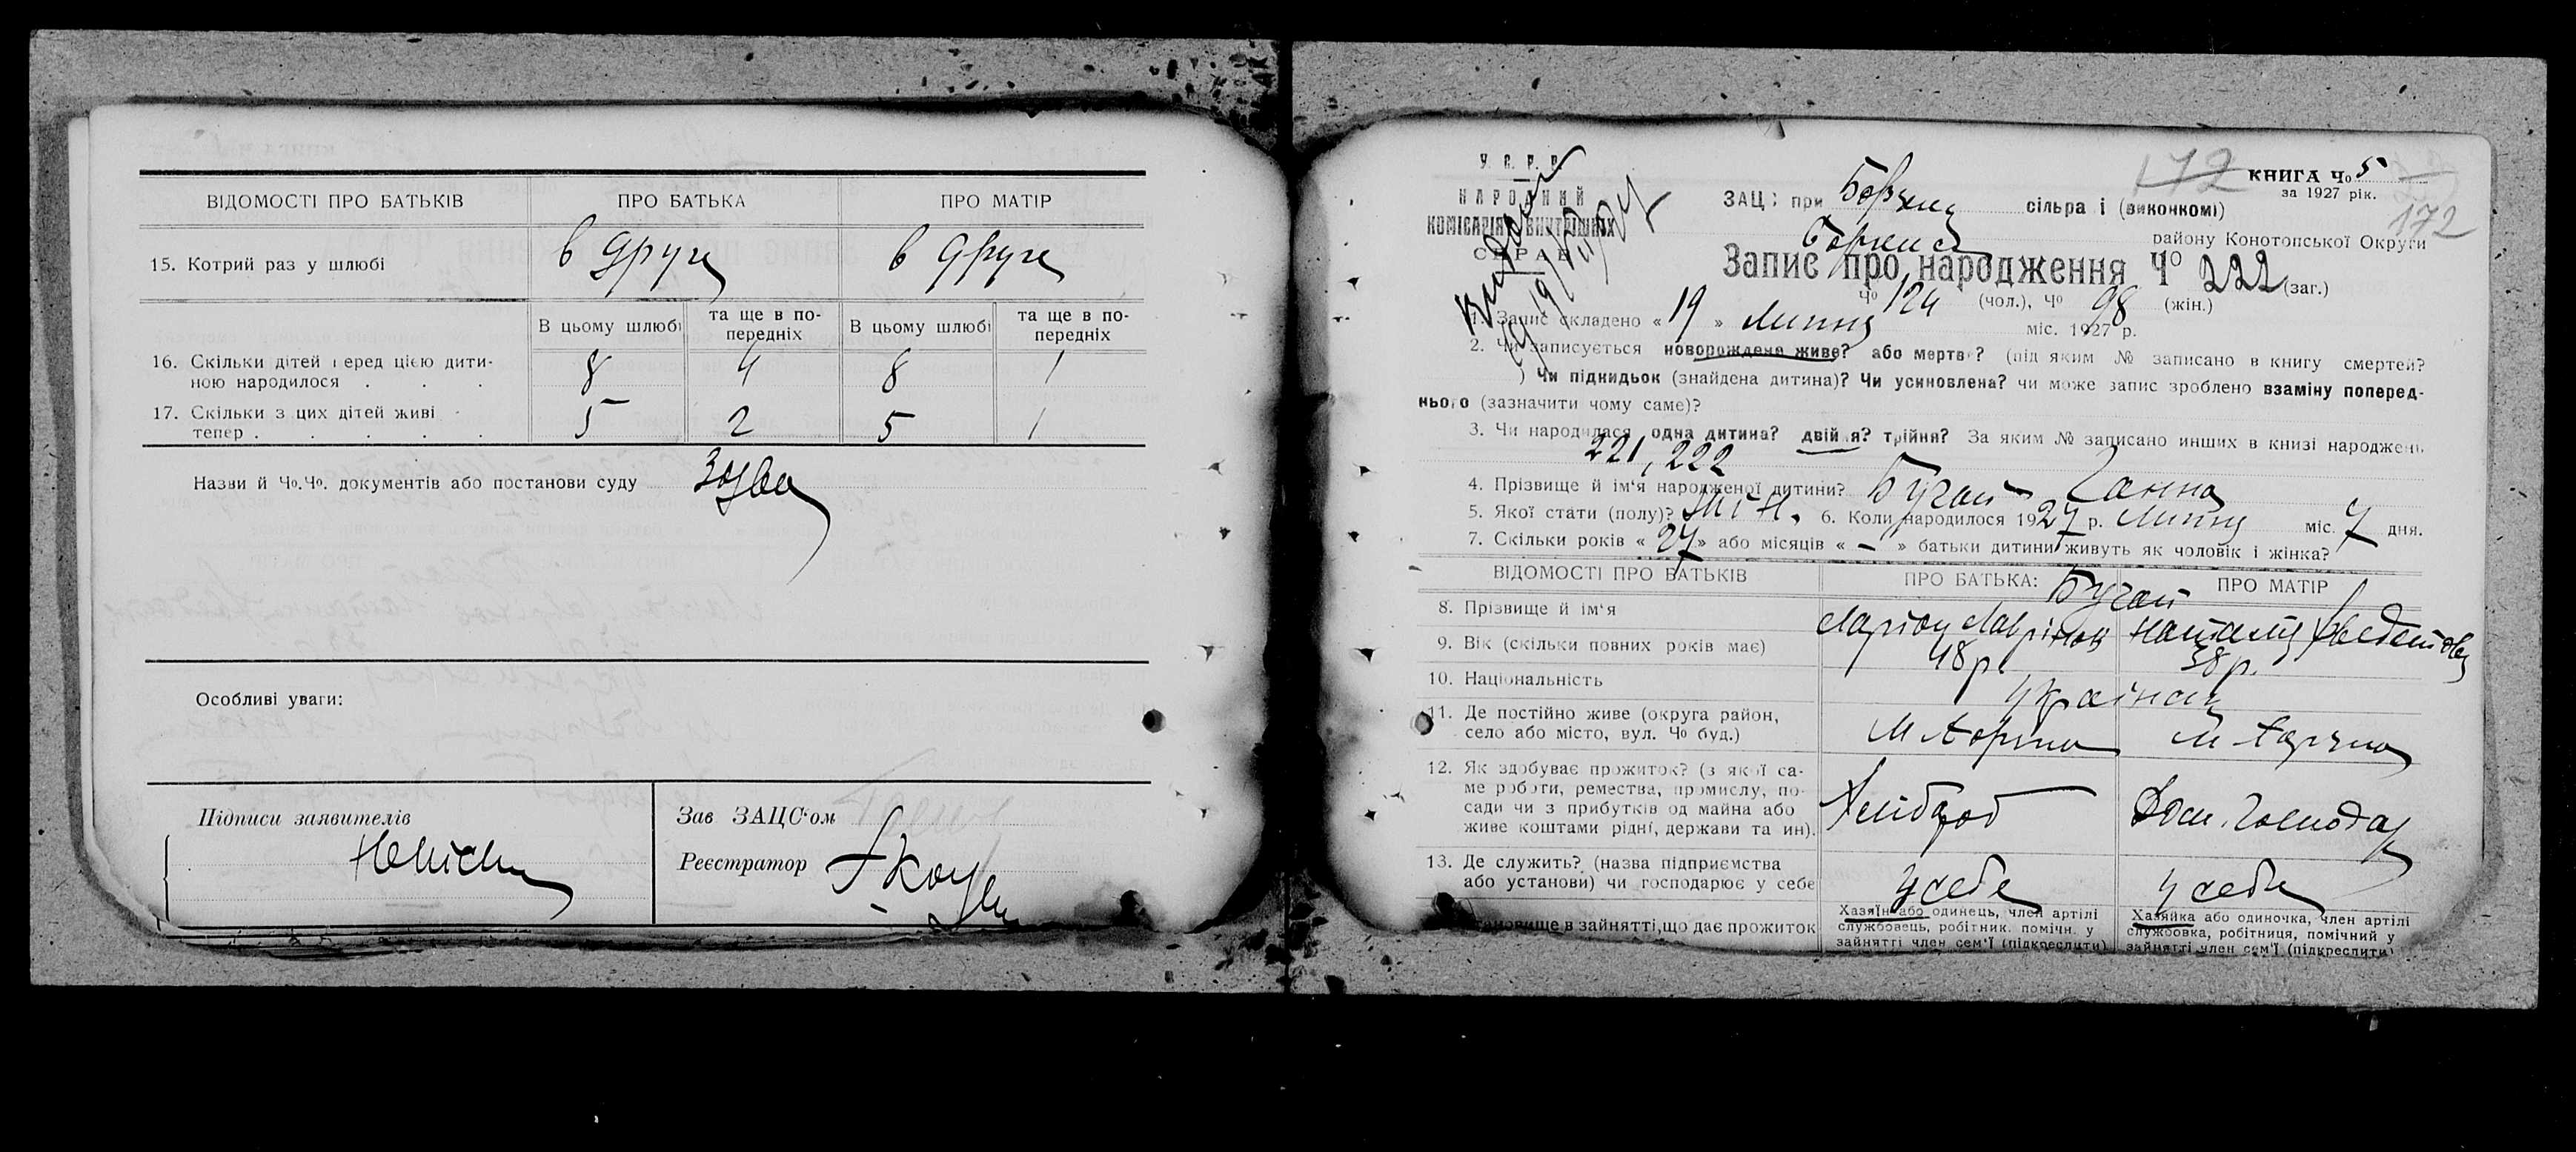 ВІДОМОСТІ ПРО БАТЬКІВ ПРО БАТЬКА ПРО МАТІР
15. Котрий раз у шлюбі в друге в друге
В цьому шлюбі та ще в по-передніх В цьому шлюбі та ще в по-передніх
16. Скільки дітей перед цією дити-
ною народилося . . . 8 4 8 1
17. Скільки з цих дітей живі
тепер . . . . . 5 2 5 1
Назви й Чо.Чо. документів або постанови суду
Особливі уваги:
Підписи заявителів
Зав ЗАЦС'ом
Реєстратор
У.С.Р.Р.
НАРОДНИЙ
КОМІСАРІЯТ ВНУТРІШНІХ
СПРАВ
172 КНИГА Чо 5
за 1927 рік.
172
ЗАЦС при Борзна сільраді (виконкомі)
району Конотопської Округи
Запис про народження Чо 222 (заг.)
Чо 124 (чол.), Чо 98 (жін.)
1. Запис складено « 19 » Липня міс. 1927 р.
2. Чи записується новорождена живе? або мертве? (під яким № записано в книгу смертей?
) Чи підкидьок (знайдена дитина)? Чи усиновлена? чи може запис зроблено взаміну поперед-
нього (зазначити чому саме)?
3. Чи народилася одна дитина? двійня? трійня? За яким № записано инших в книзі народжень
221, 222
4. Прізвище й ім'я народженої дитини? Бугай Ганна
5. Якої стати (полу)? жін. 6. Коли народилося 1927 р. Липня міс. 7 дня.
7. Скільки років « 27 » або місяців « – » батьки дитини живуть як чоловік і жінка?
ВІДОМОСТІ ПРО БАТЬКІВ ПРО БАТЬКА: ПРО МАТІР
Бугай
8. Прізвище й ім'я Ларіон Наталія
9. Вік (скільки повних років має) 48 р. 38 р.
10. Національність
11. Де постійно живе (округа район,
село або місто, вул. Чо буд.) М Борзна М Борзна
12. Як здобуває прожиток? (з якої са-
ме роботи, ремества, промислу, по-
сади чи з прибутків од майна або
живе коштами рідні, держави та ин). Хлібороб Дом. Господар
13. Де служить? (назва підприємства
або установи) чи господарює у себе у себе у себе
становище в зайнятті, що дає прожиток
Хазяїн або одинець, член артілі
службовець, робітник. помічн. у
зайнятті член сем'ї (підкреслити)
Хазяйка або одиночка, член артілі
службовка, робітниця, помічний у
зайнятті член сем'ї (підкреслити)